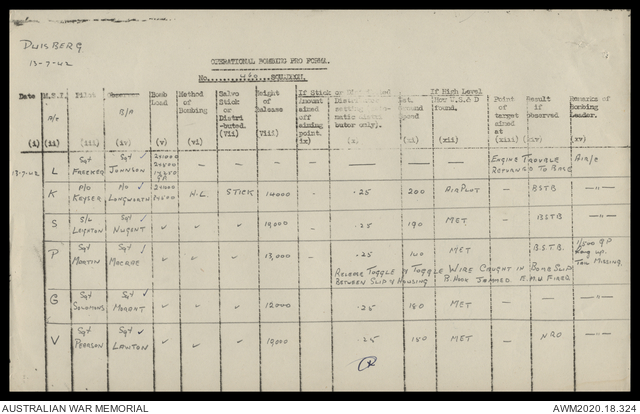 DUISBERG
13-7-42
OPERATIONAL BOMBING PRO FORMA.
No. 460 SQUADRON.
Date M.E.I. Pilot B/A Bomb Load Method of Bombing Salvo Stick or Distri-buted. Height of Release If Stick or If High Level Point of target aimed at Result if observed Remarks of Bombing Leader.
A/c Amount aimed off aiming point. only). How W.S. & D found.
(i) (ii) (iii) (iv) (v) (vi) (vii) (viii) ix) (x) (xi) (xii) (xiii) (xiv) (xv)
13-7-42 L Sgt FREEKER Sgt ✓ JOHNSON — — — — — — — — — ENGINE TROUBLE RETURNED TO BASE AIR/C
K P/O KEYSER P/O ✓ LONGWORTH H.L. STICK 14000 - .25 200 AIRPLOT — B.S.T.B —"—
S S/L LEIGHTON Sgt ✓ NUGENT ✓ ✓ ✓ 19,000 - .25 190 MET — BSTB —"—
P Sgt MARTIN Sgt ✓ MCCRAE ✓ ✓ ✓ 13,000 .25 160 MET — B.S.T.B. 1/500 GP Hung up. Tail Missing.
RELEASE TOGGLE & TOGGLE WIRE CAUGHT IN BOMB SLIP
BETWEEN SLIP & HOUSING B. HOOK JAMMED E.M.U FIRED
G Sgt SOLOMONS Sgt ✓ MORANT ✓ ✓ ✓ 12000 .25 180 MET — —"—
V Sgt PEARSON Sgt ✓ LAWTON ✓ ✓ ✓ 19000 .25 180 MET — NRO —"—
AUSTRALIAN WAR MEMORIAL AWM2020.18.324